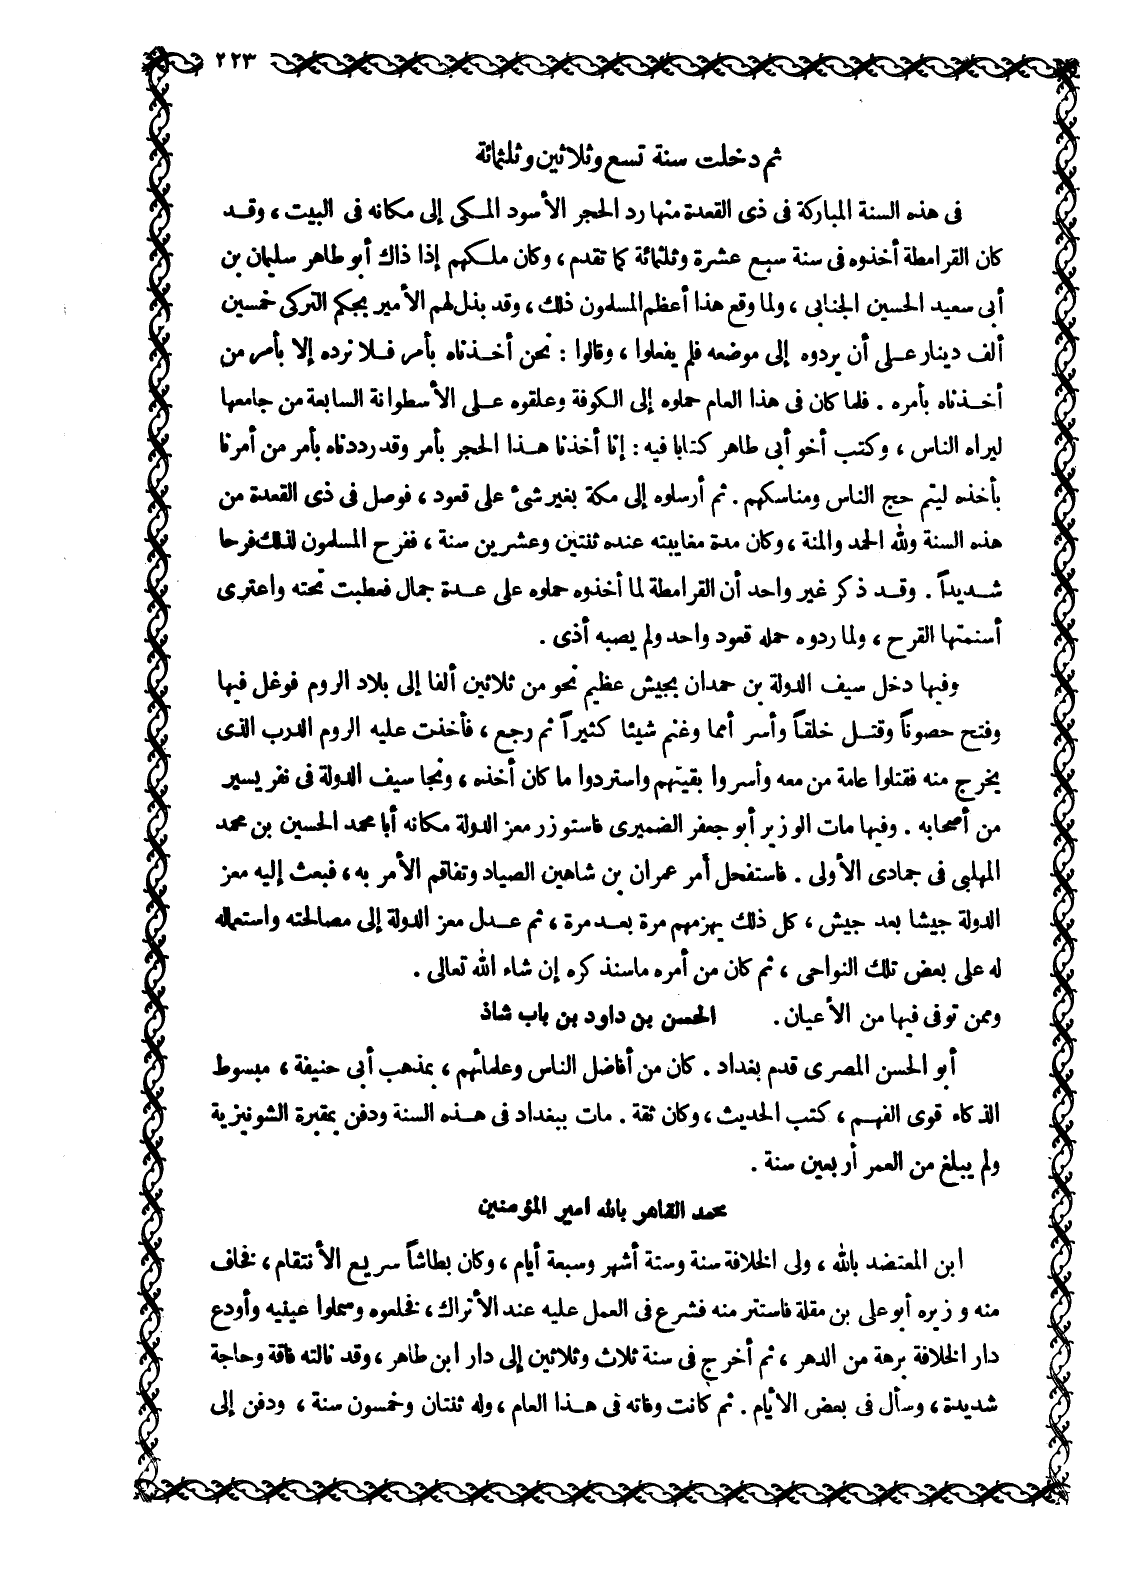 ٢٢٣
ثم دخلت سنة تسع وثلاثين وثلثمائة
فى هذه السنة المباركة فى ذى القعدة منها رد الحجر الأسود المكى إلى مكانه فى البيت ، وقد
كان القرامطة أخذوه فى سنة سبع عشرة وثلثمائة كما تقدم ، وكان ملكهم إذا ذاك أبو طاهر سليمان بن
أبى سعيد الحسين الجنابى ، ولما وقع هذا أعظم المسلمون ذلك ، وقد بذل لهم الأمير بجكم التركى خمسين
ألف دينار على أن يردوه إلى موضعه فلم يفعلوا ، وقالوا : نحن أخذناه بأمر فلا نرده إلا بأمر من
أخذناه بأمره . فلما كان فى هذا العام حملوه إلى الكوفة وعلقوه على الأسطوانة السابعة من جامعها
ليراه الناس ، وكتب أخو أبى طاهر كتابا فيه : إنا أخذنا هذا الحجر بأمر وقد رددناه بأمر من أمرنا
بأخذه ليتم حج الناس ومناسكهم . ثم أرسلوه إلى مكة بغير شئ على قعود ، فوصل فى ذى القعدة من
هذه السنة ولله الحمد والمنة ، وكان مدة مغايبته عنده ثنتين وعشرين سنة ، ففرح المسلمون لذلك فرحا
شديداً . وقد ذكر غير واحد أن القرامطة لما أخذوه حملوه على عدة جمال فعطبت تحته واعترى
أسنمتها القرح ، ولما ردوه حمله قعود واحد ولم يصبه أذى .
وفيها دخل سيف الدولة بن حمدان بجيش عظيم نحو من ثلاثين ألفا إلى بلاد الروم فوغل فيها
وفتح حصوناً وقتل خلقاً وأسر أمما وغنم شيئا كثيراً ثم رجع ، فأخذت عليه الروم الدرب الذى
يخرج منه فقتلوا عامة من معه وأسروا بقيتهم واستردوا ما كان أخذه ، ونجا سيف الدولة فى نفر يسير
من أصحابه . وفيها مات الوزير أبو جعفر الضميرى فاستوزر معز الدولة مكانه أبا محمد الحسين بن محمد
المهلبى فى جمادى الأولى . فاستفحل أمر عمران بن شاهين الصياد وتفاقم الأمر به ، فبعث إليه معز
الدولة جيشا بعد جيش ، كل ذلك يهزمهم مرة بعد مرة ، ثم عدل معز الدولة إلى مصالحته واستعماله
له على بعض تلك النواحى ، ثم كان من أمره ماسنذكره إن شاء الله تعالى .
وممن توفى فيها من الأعيان . الحسن بن داود بن باب شاذ
أبو الحسن المصرى قدم بغداد . كان من أفاضل الناس وعلمائهم ، بمذهب أبى حنيفة ، مبسوط
الذكاء قوى الفهم ، كتب الحديث ، وكان ثقة . مات ببغداد فى هذه السنة ودفن بمقبرة الشونيزية
ولم يبلغ من العمر أربعين سنة .
محمد القاهر بالله امير المؤمنين
ابن المعتضد بالله ، ولى الخلافة سنة وستة أشهر وسبعة أيام ، وكان بطاشاً سريع الأنتقام ، فخاف
منه وزيره أبو على بن مقلة فاستتر منه فشرع فى العمل عليه عند الأتراك ، فخلعوه وسملوا عينيه وأودع
دار الخلافة برهة من الدهر ، ثم أخرج فى سنة ثلاث وثلاثين إلى دار ابن طاهر ، وقد نالته فاقة وحاجة
شديدة ، وسأل فى بعض الأيام . ثم كانت وفاته فى هذا العام ، وله ثنتان وخمسون سنة ، ودفن إلى